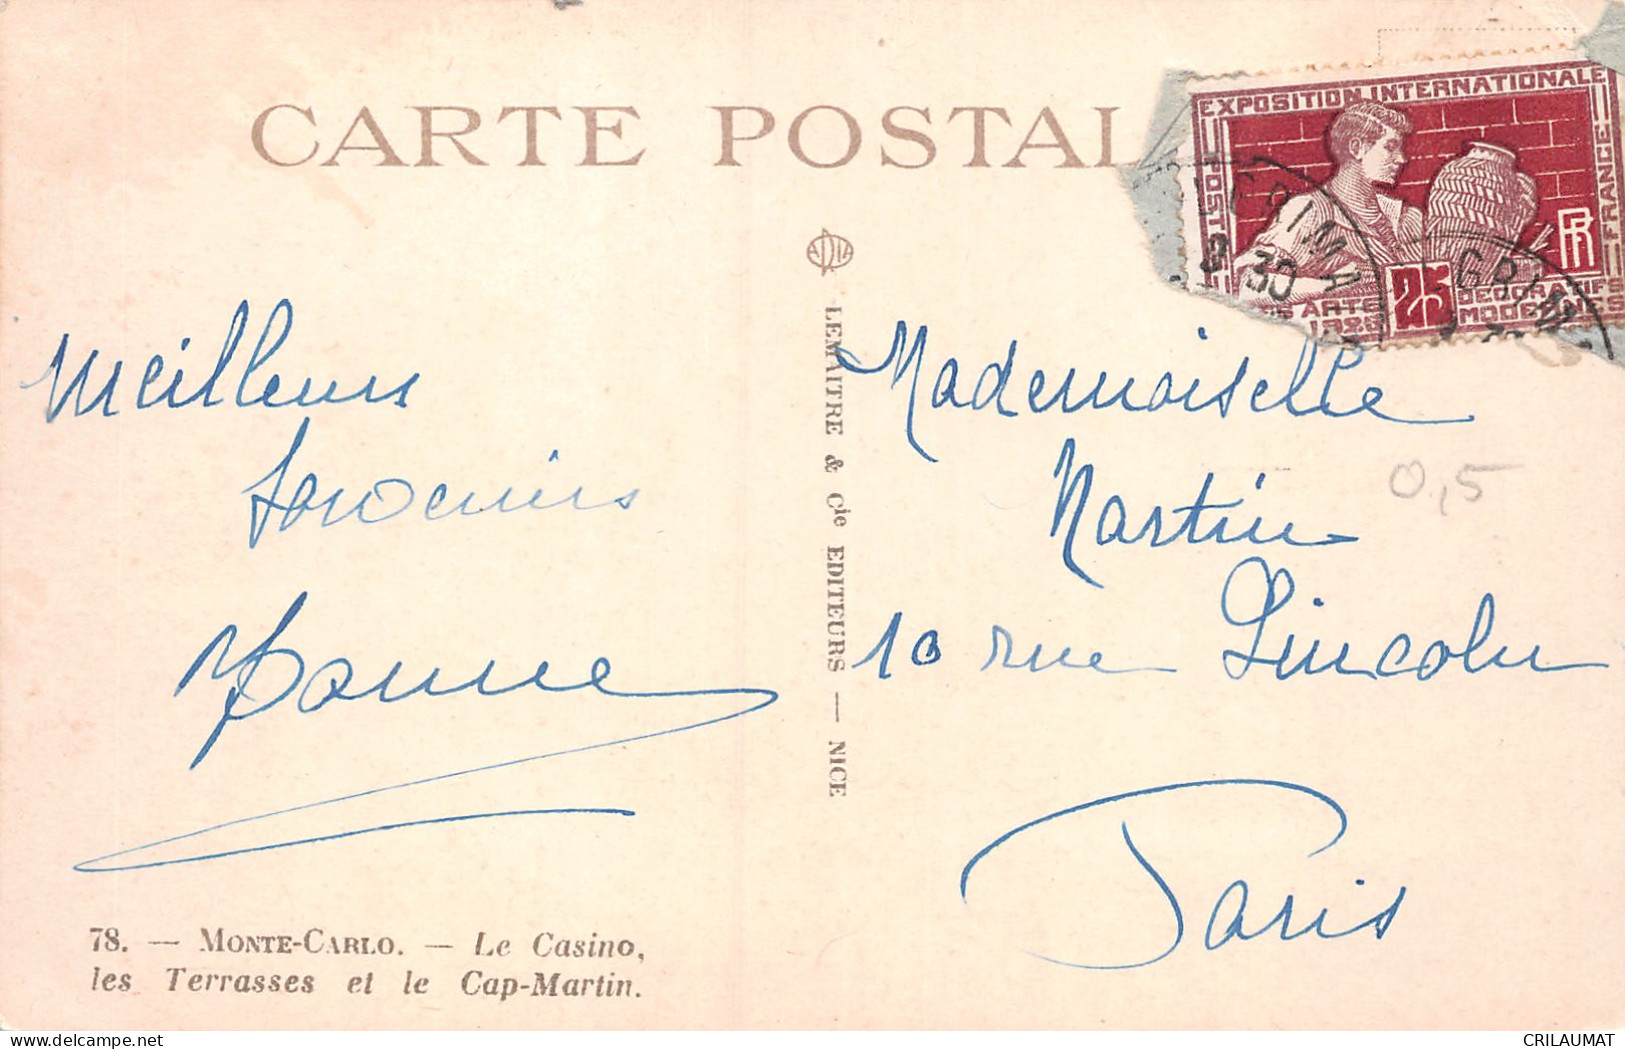 CARTE POSTAL
EXPOSITION INTERNATIONALE
POST
FRANCE
RF
GRIMA
9 30
GRIM
25
ARTS DECORATIFS
1925 MODERNES
Meilleurs
souvenirs
Mademoiselle
Martin
10 rue Lincoln
Paris
0,5
ARIA
LEMAITRE & Cie EDITEURS — NICE
78. — MONTE-CARLO. — Le Casino,
les Terrasses et le Cap-Martin.
CRILAUMAT
delcampe.net